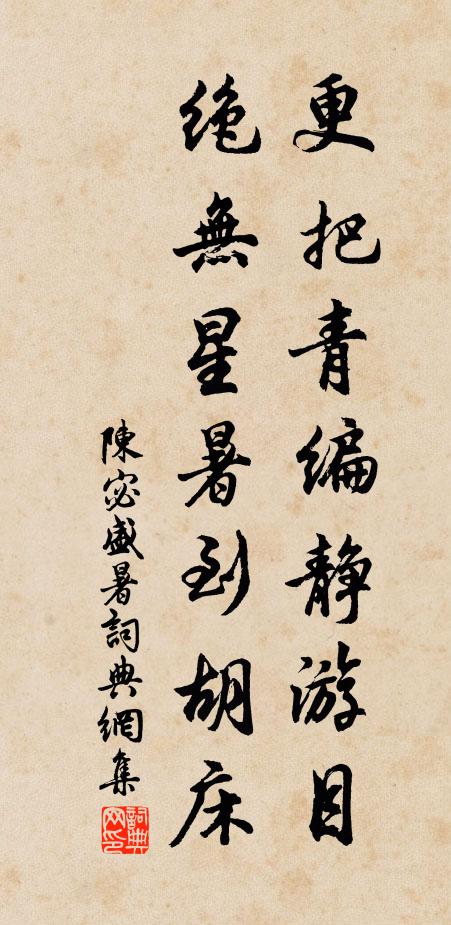 更把青编静游目
絶無星暑到胡床
陳宓盛暑詞典網集
詞典网印